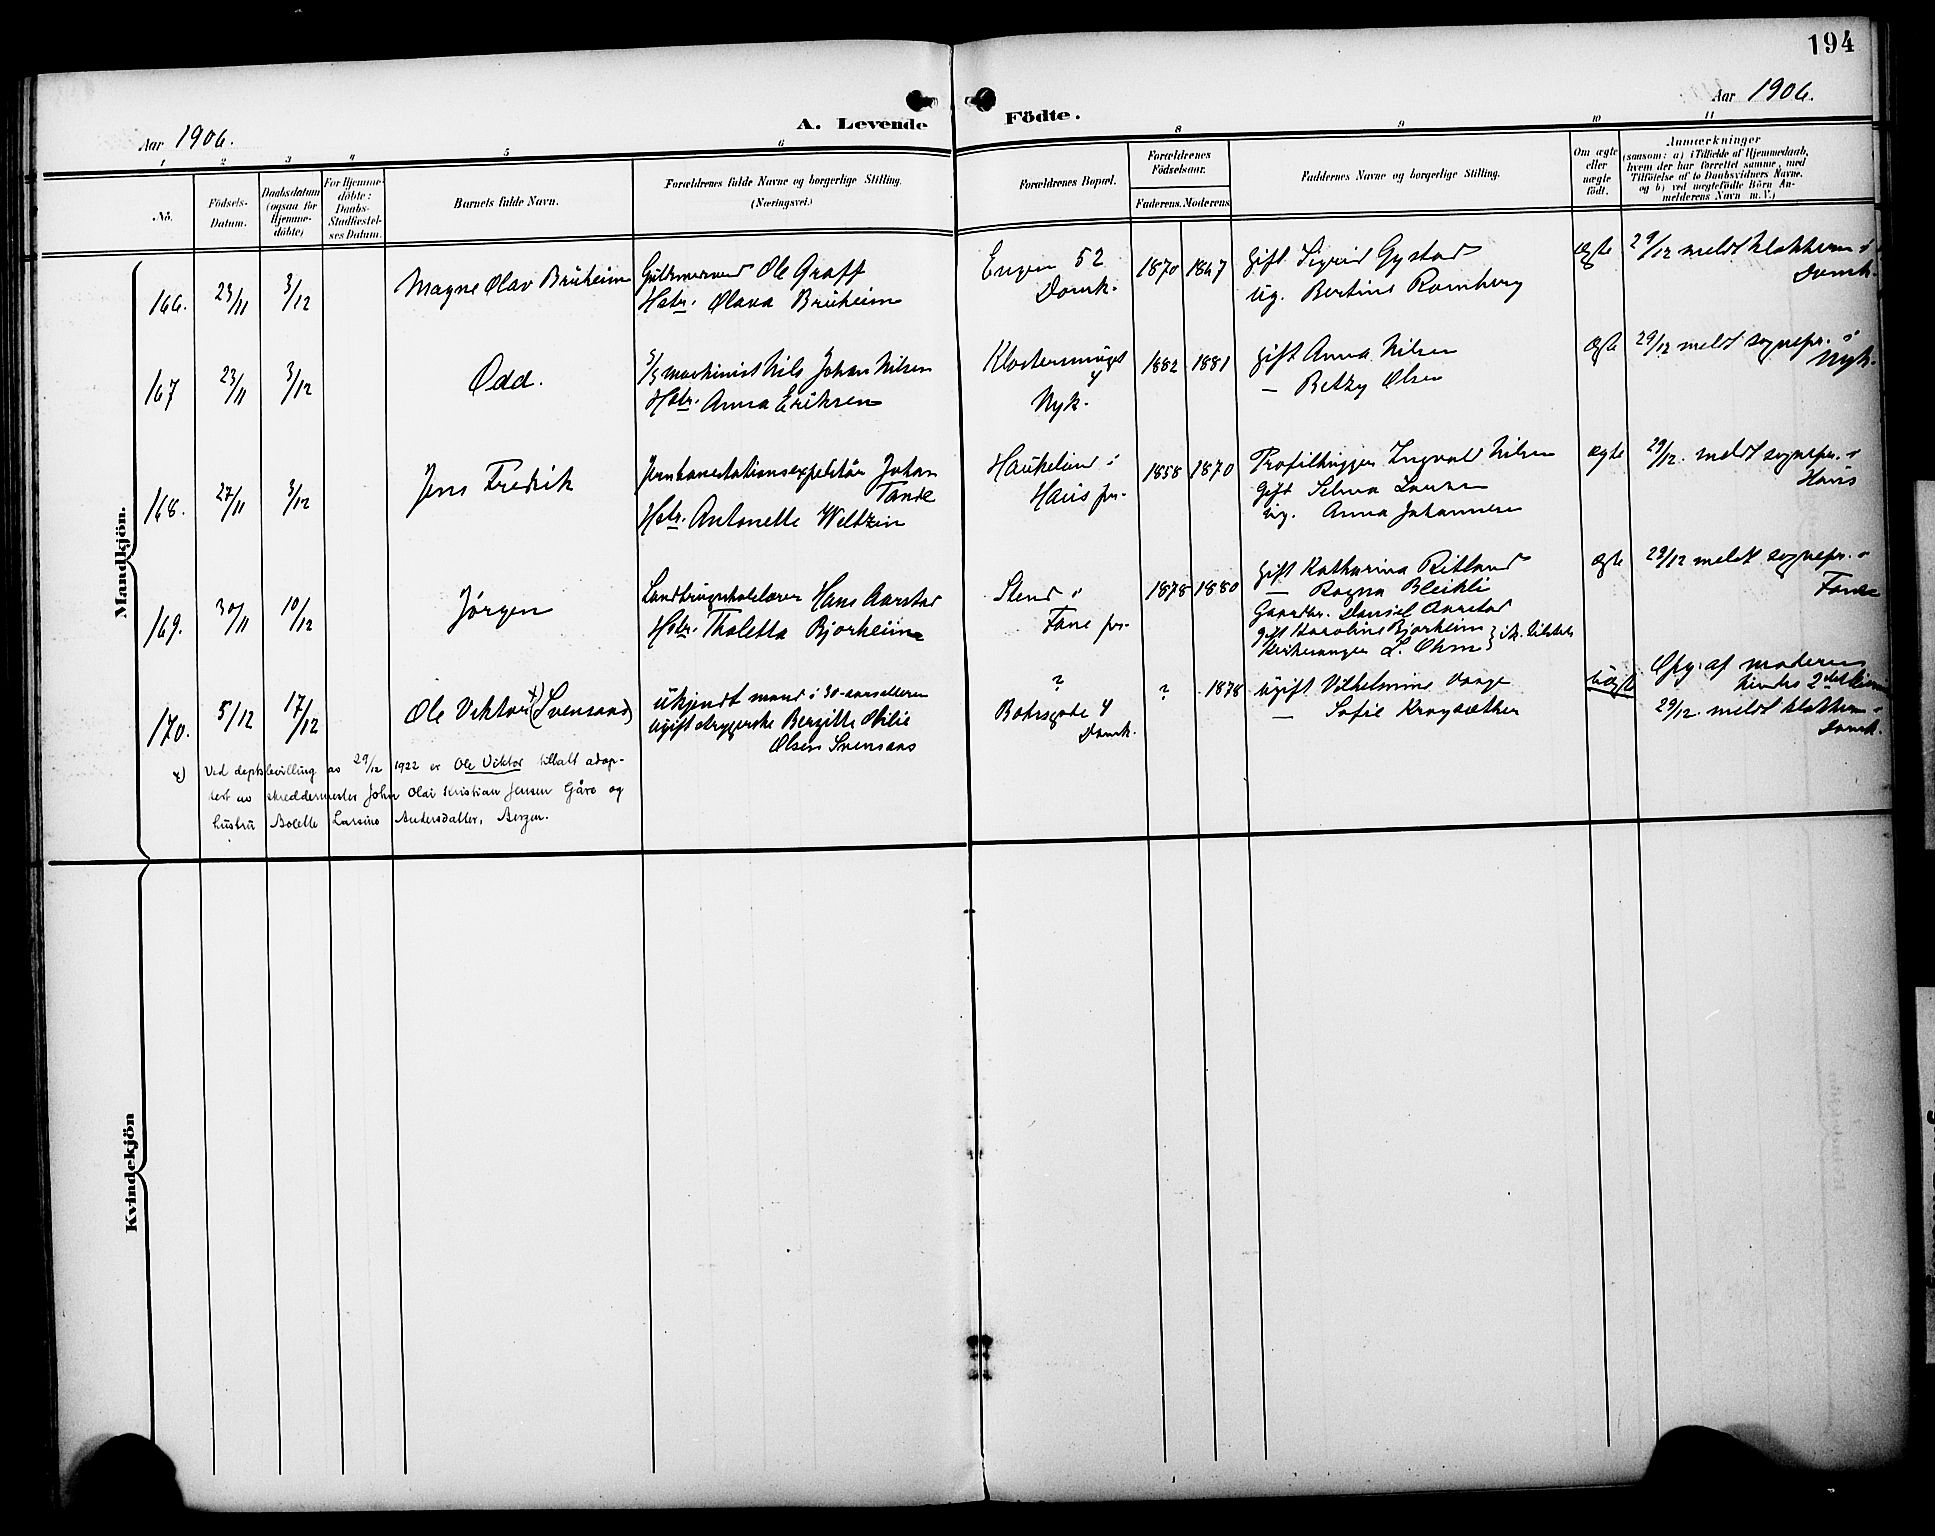 194
Aar 1906.
A. Levende
Födte.
Aar 1906.
1 2 3 4 5 6 8 9 10 11
No.
Födsels-
Datum.
Daabsdatum
(ogsaa for
Hjemme-
döbte)
For Hjemme-
döbte:
Daabs-
Stadfæstel-
ses Datum.
Barnets fulde Navn.
Forældrenes fulde Navne og borgerlige Stilling.
(Næringsvei.)
Forældrenes Bopæl.
Forældrenes
Födselsaar.
Faderens. Moderens.
Faddernes Navne og borgerlige Stilling.
Om ægte
eller
uægte
født.
Anmærkninger
(saasom: a) i Tilfælde af Hjemmedaab,
hvem der har forrettet samme, med
Tilföielse af to Daabsvidners Navne,
og b) ved uægtefödte Börn An-
melderens Navn m. V.)
Mandkjön.
166. 23/11 3/12 Magne Olav Brüheim
Guldsmedsvend Ole Graff
Hstr. Olava Brüheim
Engen 52
Domk.
1870 1867
Gift Sigrid Gystad
Ug. Bertine Romberg
ægte
29/12 meldt klokkeren i
Domk.
167 23/11 3/12 Odd.
S/S maskinist Nils Johan Nilsen
Hstr. Anna Eriksen
Klostersmuget
4
Nyk.
1882 1881
Gift Anna Nilsen
— Betzy Olsen
ægte
29/12 meldt sognepr. i
Nyk.
168. 27/11 3/12 Jens Fredrik
Jernbanestationsexpeditør Johan
Tande
Hstr. Antonette Weltzin
Haukeland i
Haus pr.
1858 1870
Ingvald Nilsen
Gift Selma Larsen
Ug. Anna Johannesen
ægte
29/12. meldt sognepr. i
Haus
169. 30/11 10/12 Jørgen
Landbrugsskolelærer Hans Aarstad
Hstr. Tholetta Bjorheim
Stend i
Fane pr.
1878 1880
Gift Katharina Ritland
— Ragna Bleikli
Gaardbr. Daniel Aarstad
gift Karoline Bjorheim
Kirkesanger L. Ohm } ik. tilstede
ægte
29/12 meldt sognepr. i
Fane
170. 5/12 17/12 Ole Viktor x) (Svensaas)
ukjendt mand i 30-aarsalderen
ugift Bergitte Otilie
Olsen Svensaas
?
Bohrsgade 4
Domk.
? 1878
Ugift Vilhelmine Vaage
— Sofie Kragsæther
uægte
Opg. af moderen
hendes 2det barn
29/12. meldt klokkeren i
Domk.
x) Ved depts bevilling av 29/12 1922 er Ole Viktor tillatt adop-
tert av skreddermester Johan Olai Kristian Jensen Gåre og
hustru Bolette Larsine Andersdatter, Bergen.
Kvindekjön